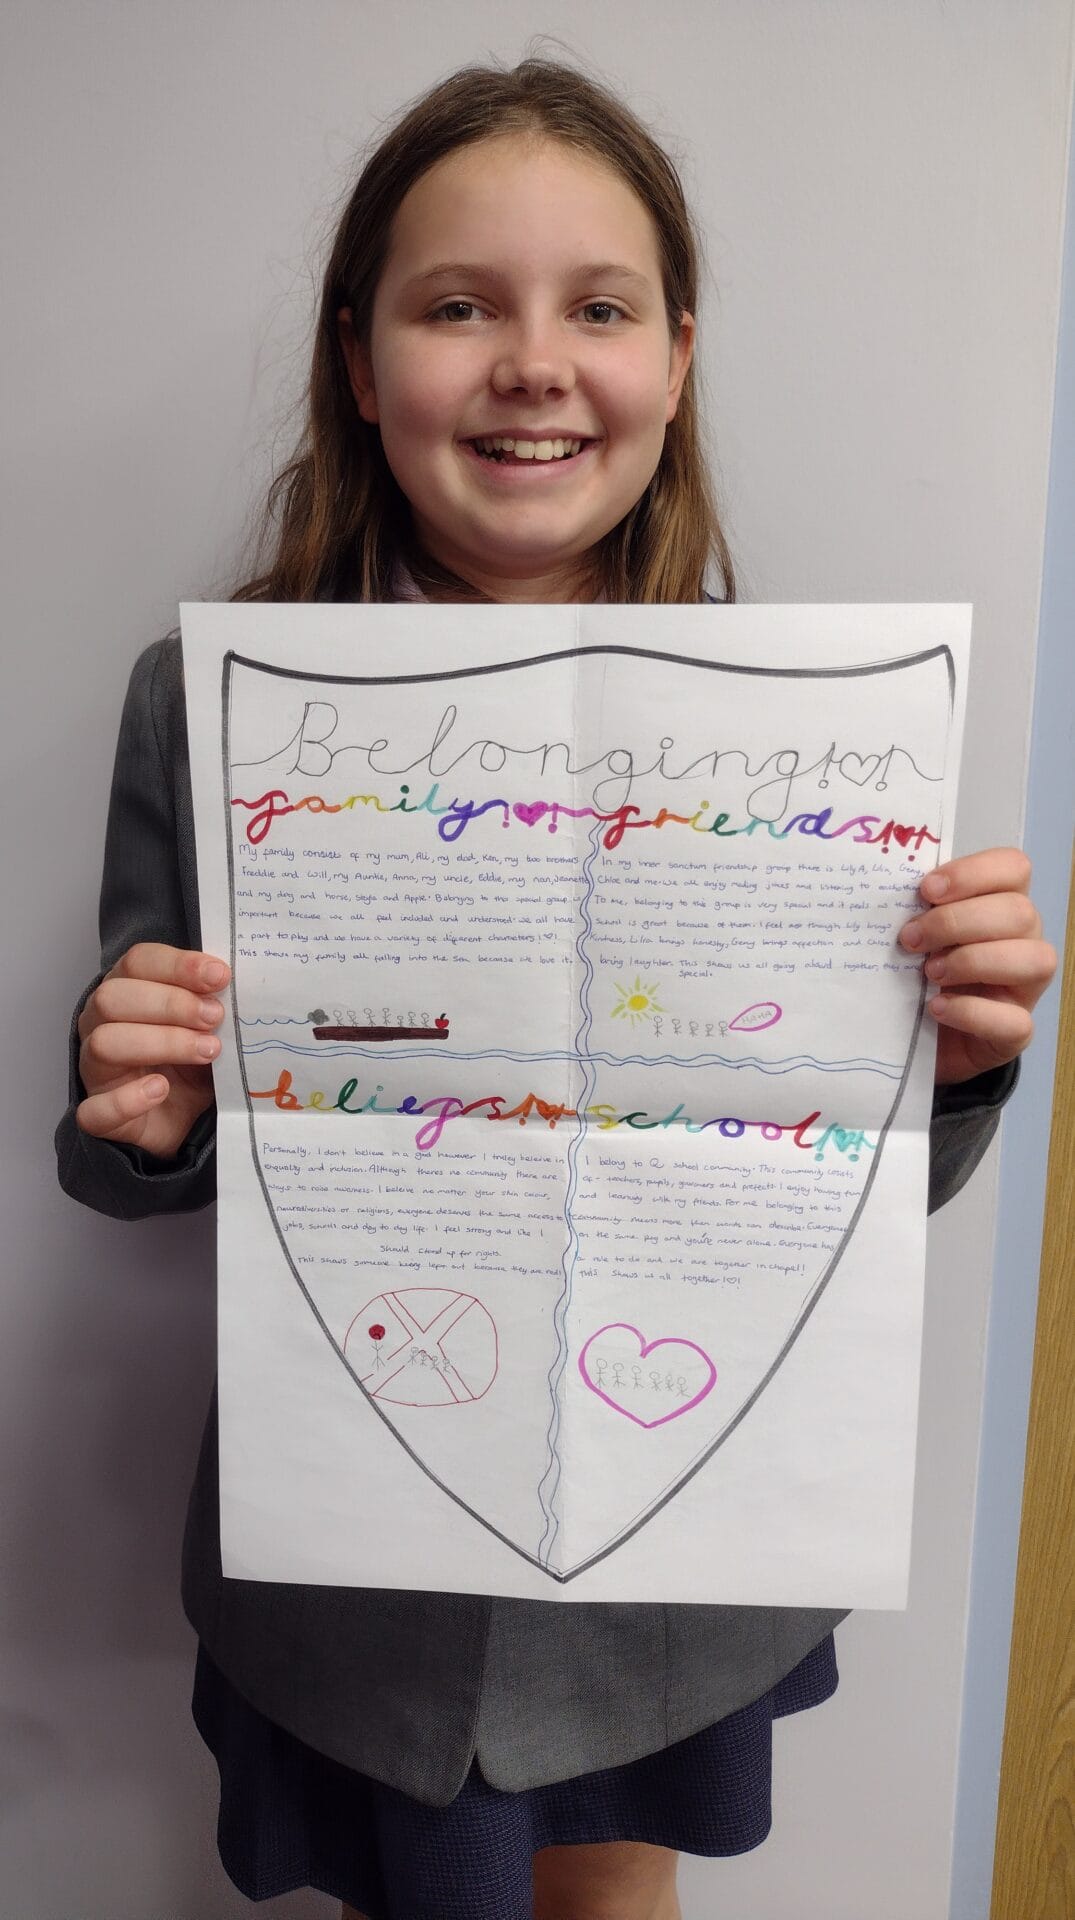 Belonging!♡!
family!♡!
My family consists of my mam, Ali, my dad, Ken, my two brothers
Freddie and Will, my Auntie, Anna, my uncle, Eddie, my nan, Jeanette
and my dog and horse, and Apple. Belonging to the special group is
important because we all feel included and understood. we all have
a part to play and we have a variety of different characters!♡!
This shows my family all falling into the sea because we love it.
friends!♡!
In my inner sanctum friendship group there is Lily A, Lilia, Geny,
Chloe and me. We all enjoy making jokes and listening to each other
To me, belonging to this group is very special and it feels as though
School is great because of them. I feel as though Lily brings
Kindness, brings honesty, Geny brings affection and Chloe
bring laughter. This shows us all going about together, they are
special.
HAHA
beliefs!♡!
Personally, I don't believe in a god however I truley beleive in
equality and inclusion. Although theres no community there are
ways to raise awarness. I beleive no matter your skin colour,
neurodiversities or religions, everyone deserves the same access to
jobs, schools and day to day life. I feel strong and like I
should stand up for rights.
This shows someone being left out because they are red!
school!♡!
I belong to Q school community. This community cosists
of - teachers, pupils, governers and prefects. I enjoy having fun
and learning with my friends. For me belonging to this
community means more than words can describe. Everyones
on the same page and you're never alone. Everyone has
a role to do and we are together in chapel!
this shows us all together!♡!